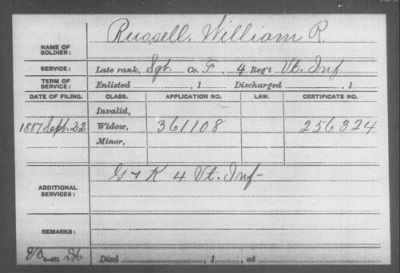 NAME OF SOLDIER: Russell, William R.
SERVICE: Late rank, Sgt. Co. F, 4 Reg't Vt. Inf
TERM OF SERVICE: Enlisted , 1 Discharged , 1
DATE OF FILING. CLASS. APPLICATION NO. LAW. CERTIFICATE NO.
Invalid,
1887 Sept. 22 Widow, 361108 256324
Minor,
ADDITIONAL SERVICES: G + K 4 Vt. Inf-
REMARKS:
Died , 1 , at